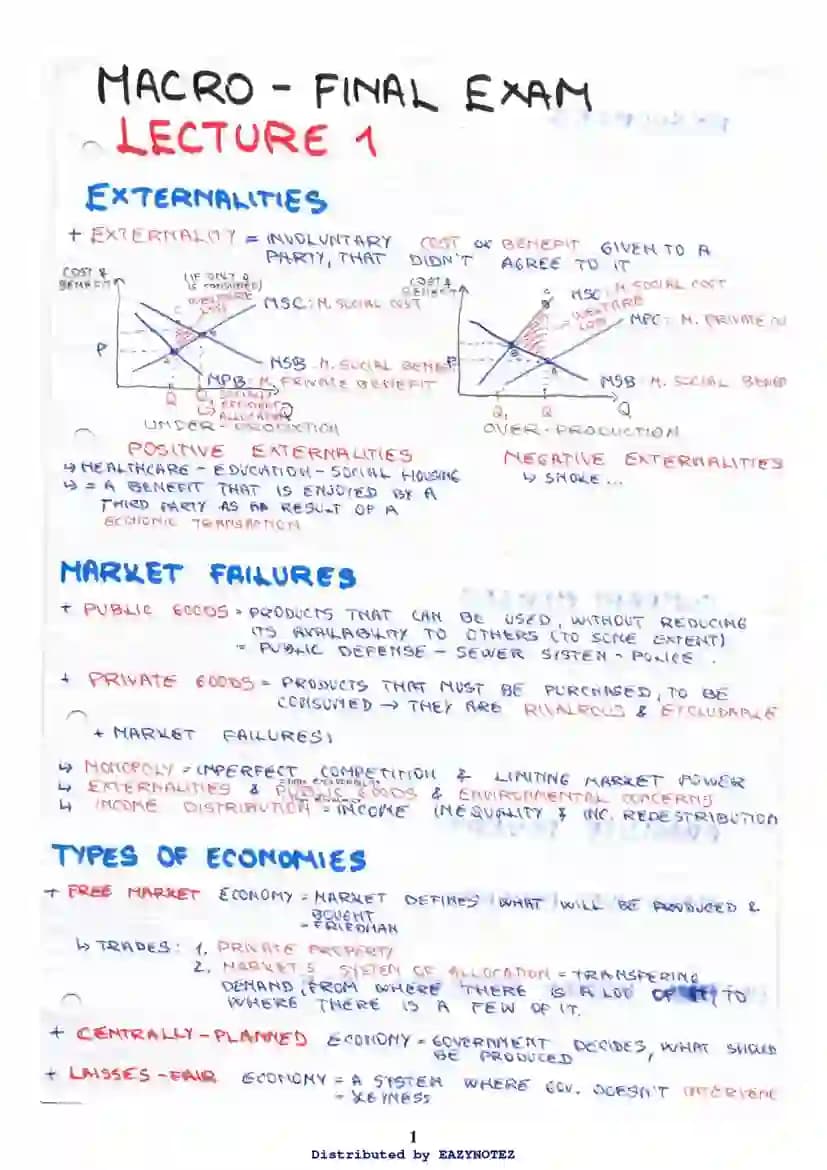 MACRO - FINAL EXAM
LECTURE 1
EXTERNALITIES
+ EXTERNALITY = INVOLUNTARY COST OR BENEFIT GIVEN TO A
PARTY, THAT DIDN'T AGREE TO IT
COST &
BENEFIT
(IF ONLY Q
IS CONSUMED)
WELFARE
LOSS
C
MSC: M. SOCIAL COST
P
MSB: M. SOCIAL BENEF
MPB: M. PRIVATE BENEFIT
Q Q1 SOCIALLY Q
EFFICIENT
ALLOCATION
UNDER-PRODUCTION
COST &
BENEFIT
C
MSC: M. SOCIAL COST
WELFARE
LOSS
MPC: M. PRIVATE CO
P
MSB: M. SOCIAL BENEF
Q1 Q Q
OVER-PRODUCTION
POSITIVE EXTERNALITIES
↳ HEALTHCARE - EDUCATION - SOCIAL HOUSING
↳ = A BENEFIT THAT IS ENJOYED BY A
THIRD PARTY AS AN RESULT OF A
ECONOMIC TRANSACTION
NEGATIVE EXTERNALITIES
↳ SMOKE ...
MARKET FAILURES
+ PUBLIC GOODS = PRODUCTS THAT CAN BE USED, WITHOUT REDUCING
ITS AVAILABILITY TO OTHERS (TO SOME EXTENT)
= PUBLIC DEFENSE - SEWER SISTEM - POLICE .
+ PRIVATE GOODS = PRODUCTS THAT MUST BE PURCHASED, TO BE
CONSUMED → THEY ARE RIVALROUS & EXCLUDABLE
+ MARKET FAILURES:
↳ MONOPOLY = IMPERFECT COMPETITION & LIMITING MARKET POWER
↳ EXTERNALITIES & PUBLIC GOODS & ENVIRONMENTAL CONCERNS
↳ INCOME DISTRIBUTION = INCOME INEQUALITY & INC. REDESTRIBUTION
TYPES OF ECONOMIES
+ FREE MARKET ECONOMY = MARKET DEFINES WHAT WILL BE PRODUCED &
BOUGHT
- FRIEDMAN
↳ TRADES: 1. PRIVATE PROPERTY
2. MARKET'S SYSTEM OF ALLOCATION = TRANSFERING
DEMAND (FROM WHERE THERE IS A LOT OF IT) TO
WHERE THERE IS A FEW OF IT.
+ CENTRALLY-PLANNED ECONOMY = GOVERNMENT DECIDES, WHAT SHOULD
BE PRODUCED
+ LAISSES-FAIR ECONOMY = A SYSTEM WHERE GOV. DOESN'T INTERVENE
- KEYNESS
1
Distributed by EAZYNOTEZ